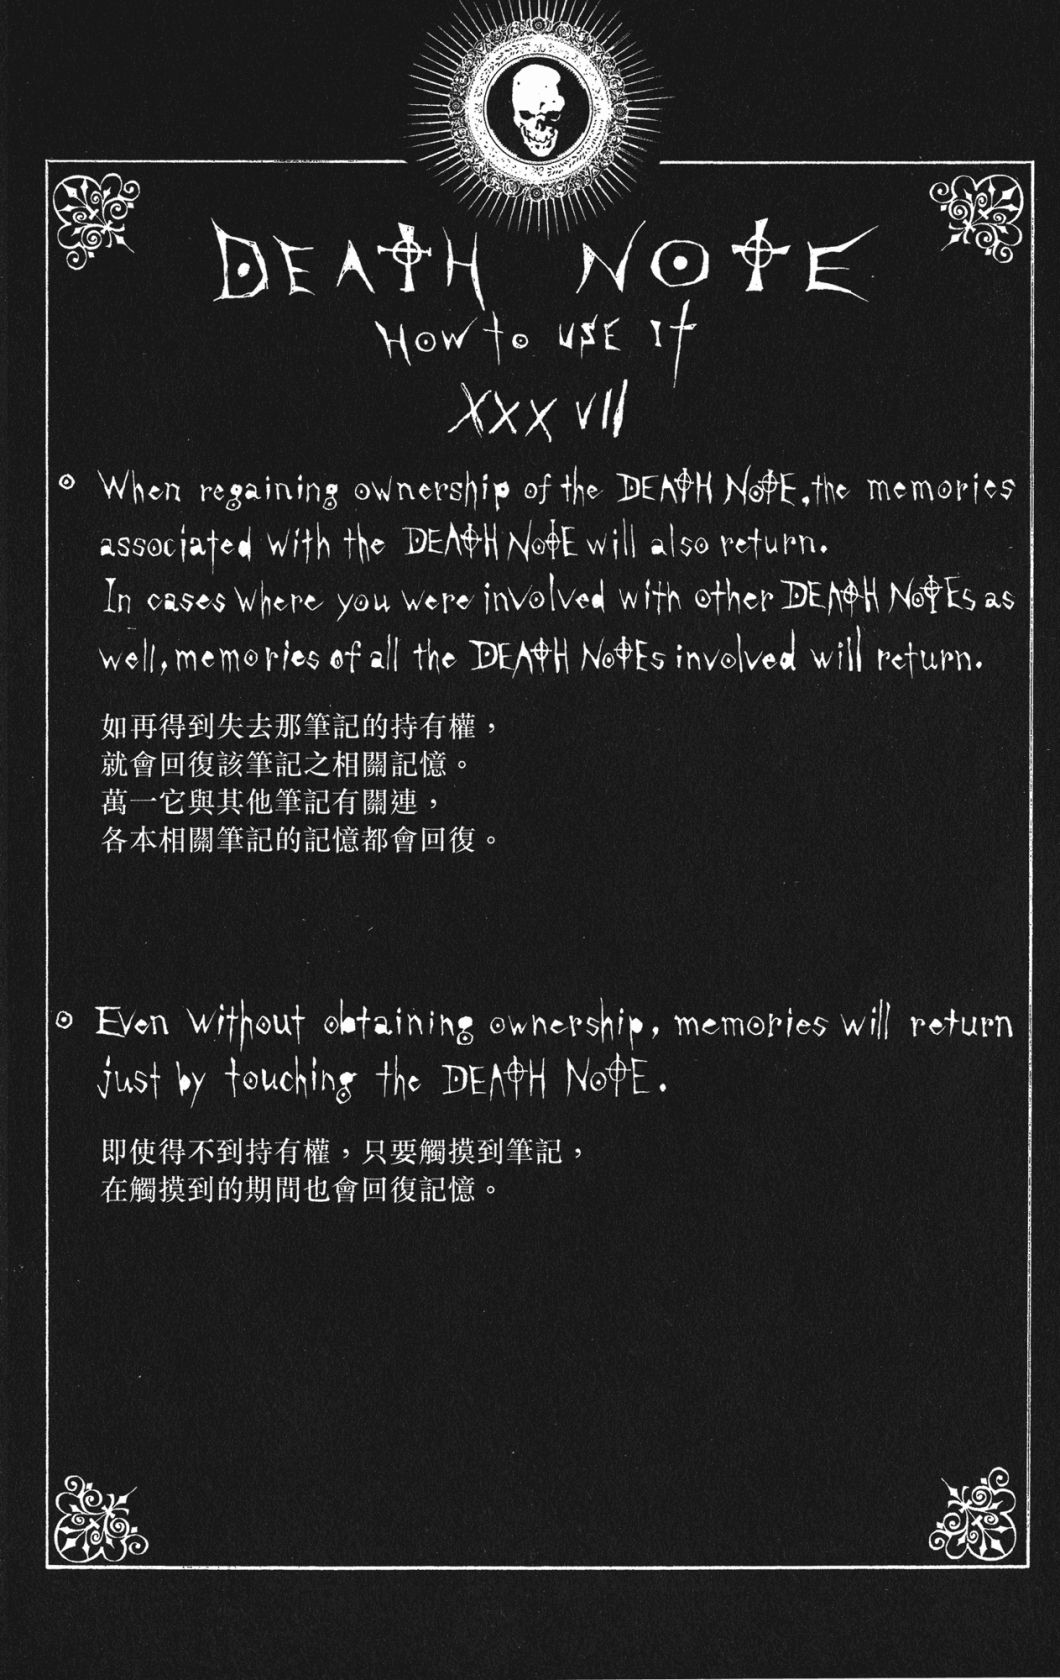 DEATH NOTE
HOW to USE It
XXXVII
When regaining ownership of the DEATH NOTE, the memories
associated with the DEATH NOTE will also return.
In cases where you were involved with other DEATH NOTEs as
well, memories of all the DEATH NOTEs involved will return.
如再得到失去那筆記的持有權，
就會回復該筆記之相關記憶。
萬一它與其他筆記有關連，
各本相關筆記的記憶都會回復。
Even without obtaining ownership, memories will return
just by touching the DEATH NOTE.
即使得不到持有權，只要觸摸到筆記，
在觸摸到的期間也會回復記憶。